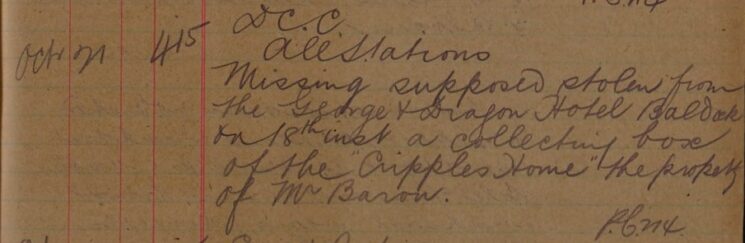 D.C.C
Oct 21 415 All Stations
Missing supposed stolen from
the George & Dragon Hotel Baldock
on 18th inst a collecting box
of the "Cripples Home" the property
of Mr Baron.